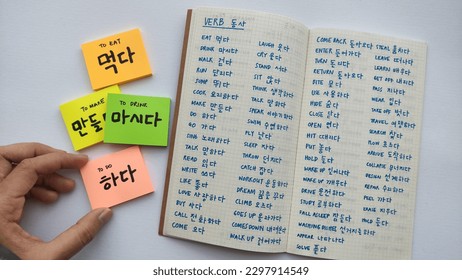 TO EAT
먹다
TO MAKE
만들
TO DRINK
마시다
TO DO
하다
VERB 동사
EAT 먹다
DRINK 마시다
WALK 걷다
RUN 달리다
JUMP 뛰다
COOK 요리하다
MAKE 만들다
DO 하다
GO 가다
SING 노래하다
TALK 말하다
READ 읽다
WRITE 쓰다
LIKE 좋다
LOVE 사랑하다
BUY 사다
CALL 전화하다
COME 오다
LAUGH 웃다
CRY 울다
STAND 서다
SIT 앉다
THINK 생각하다
TALK 말하다
SPEAK 이야기하다
SWIM 수영하다
FLY 날다
SLEEP 자다
THROW 던지다
CATCH 잡다
WORKOUT 운동하다
DREAM 꿈을 꾸다
CLIMB 오르다
GOES UP 올라가다
COMES DOWN 내려오다
WALK UP 걸어가다
COME BACK 돌아오다
ENTER 들어가다
TURN
RETURN 돌아오다
BITE 물다
USE 사용하다
HIDE 숨다
CLOSE 닫다
OPEN 열다
HIT 때리다
PUT 놓다
HOLD 들다
WAKE UP 일어나다
WAKE UP 깨우다
DRIVE 운전하다
STUDY 공부하다
FALL ASLEEP 잠들다
WASHING DISHES
APPEAR 나타나다
SOLVE 풀다
STEAL 훔치다
LEAVE 떠나다
LEARN 배우다
GET OFF 내리다
PASS 지나다
WEAR 입다
TAKE OFF 벗다
TRAVEL 여행하다
SEARCH 찾다
ARRIVE 도착하다
COLLAPSE 무너지다
DESIGN 설계하다
PEEL
ERASE 지우다